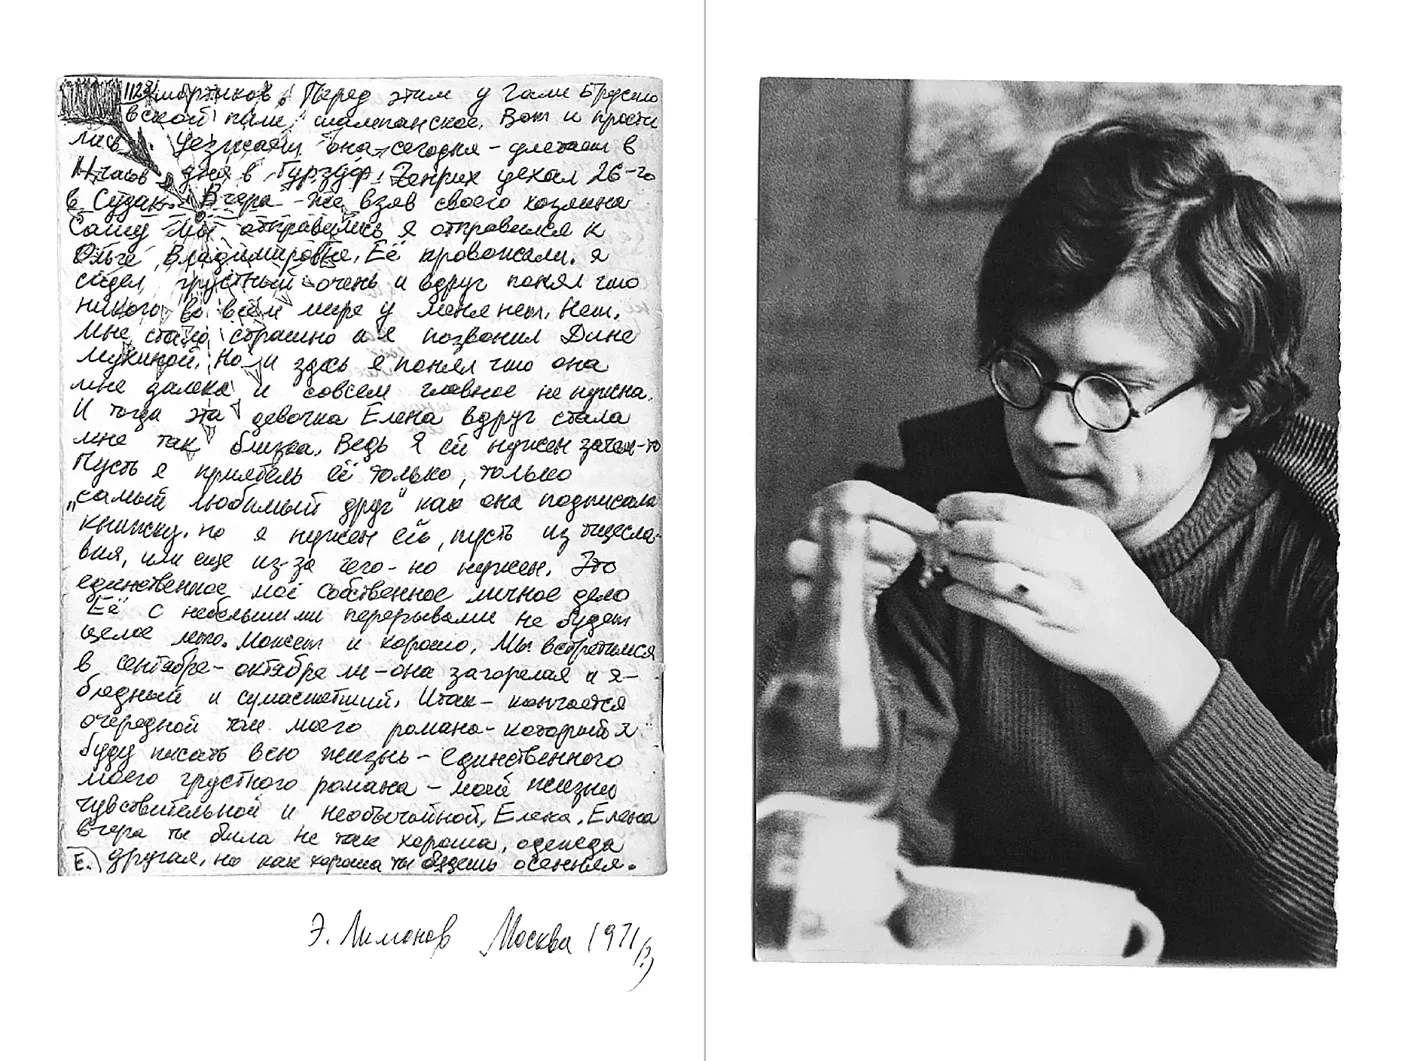 112 мортиков. Перед этим у Гали Брусило
вской пили шампанское. Вот и прости
лись. Уезжает она сегодня - улетает в
дня в Гурзуф. Генрих уехал 26-го
в Судак. Вчера - же взяв своего хозяина
Сашу мы отправились я отправился к
Ольге Владимировне. Её провожали. Я
сидел грустный очень и вдруг понял что
никого во всём мире у меня нет. Нет.
Мне стало страшно и я позвонил Дине
Мухиной. Но и здесь я понял что она
мне далека и совсем главное не нужна.
И тогда эта девочка Елена вдруг стала
мне так близка. Ведь я ей нужен зачем-то
Пусть я приятель её только, только
„самый любимый друг" как она подписала
книжку. но я нужен ей, пусть из тщесла-
вия, или еще из-за чего-но нужен. Это
единственное моё собственное личное дело
Её с небольшими перерывами не будет
целое лето. Может и хорошо. Мы встретимся
в сентябре-октябре ли-она загорелая и я-
бледный и сумасшедший. Итак-кончается
очередной том моего романа-который я
буду писать всю жизнь-единственного
моего грустного романа-моей жизни
чувствительной и необычайной. Елена. Елена
вчера ты была не так хороша, одежда
Е. другая, но как хороша ты будешь осенняя.
Э. Лимонов Москва 1971(?)